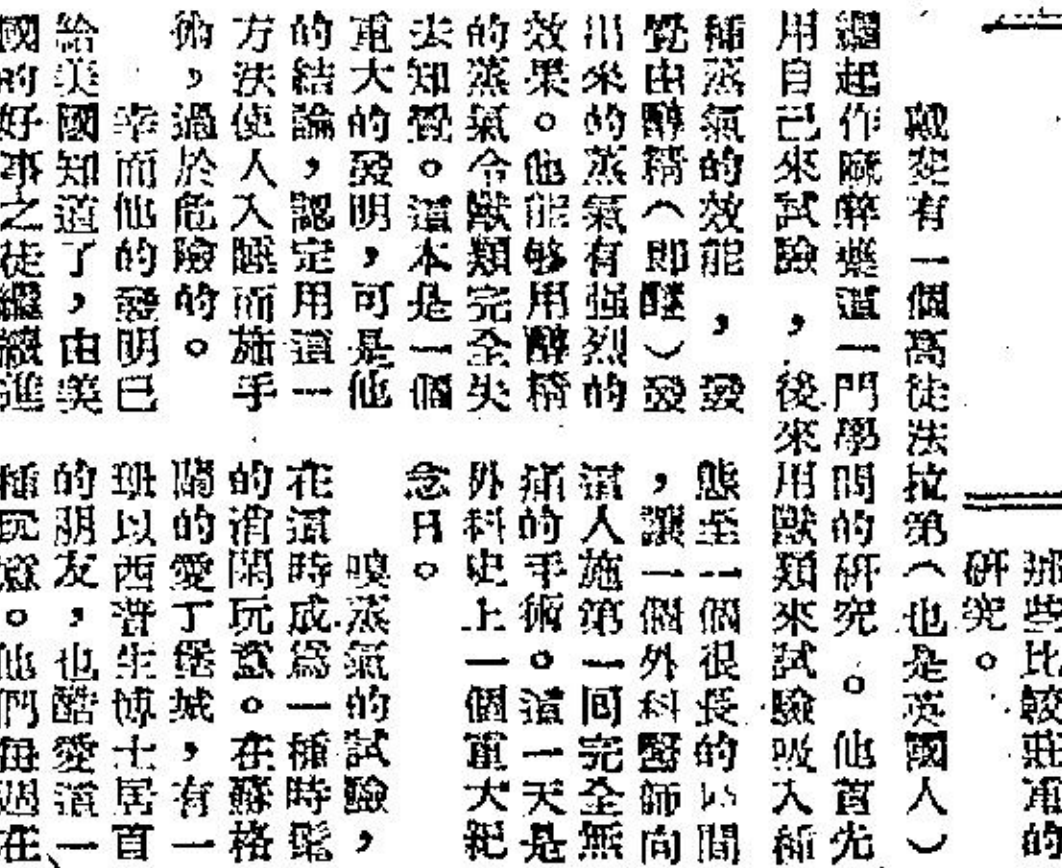 那些比較莊重的
研究。
戴斐有一個高徒法拉第(也是英國人)
繼起作麻醉藥這一門學問的研究。他首先
用自己來試驗,後來用獸類來試驗吸入種
種蒸氣的效能,發
覺由醇精(即醚)發
出來的蒸氣有强烈的
效果。他能够用醇精
的蒸氣令獸類完全失
去知覺。這本是一個
重大的發明,可是他
的結論,認定用這一
方法使人入睡而施手
術,過於危險的。
幸而他的發明已
給美國知道了,由美
國的好事之徒繼續進
態至一個很長的時間
,讓一個外科醫師向
這人施第一回完全無
痛的手術。這一天是
外科史上一個重大紀
念日。
嗅蒸氣的試驗,
在這時成爲一種時髦
的消閑玩意。在蘇格
蘭的愛丁堡城,有一
班以西普生博士居首
的朋友,也酷愛這一
種玩意。他們每週在